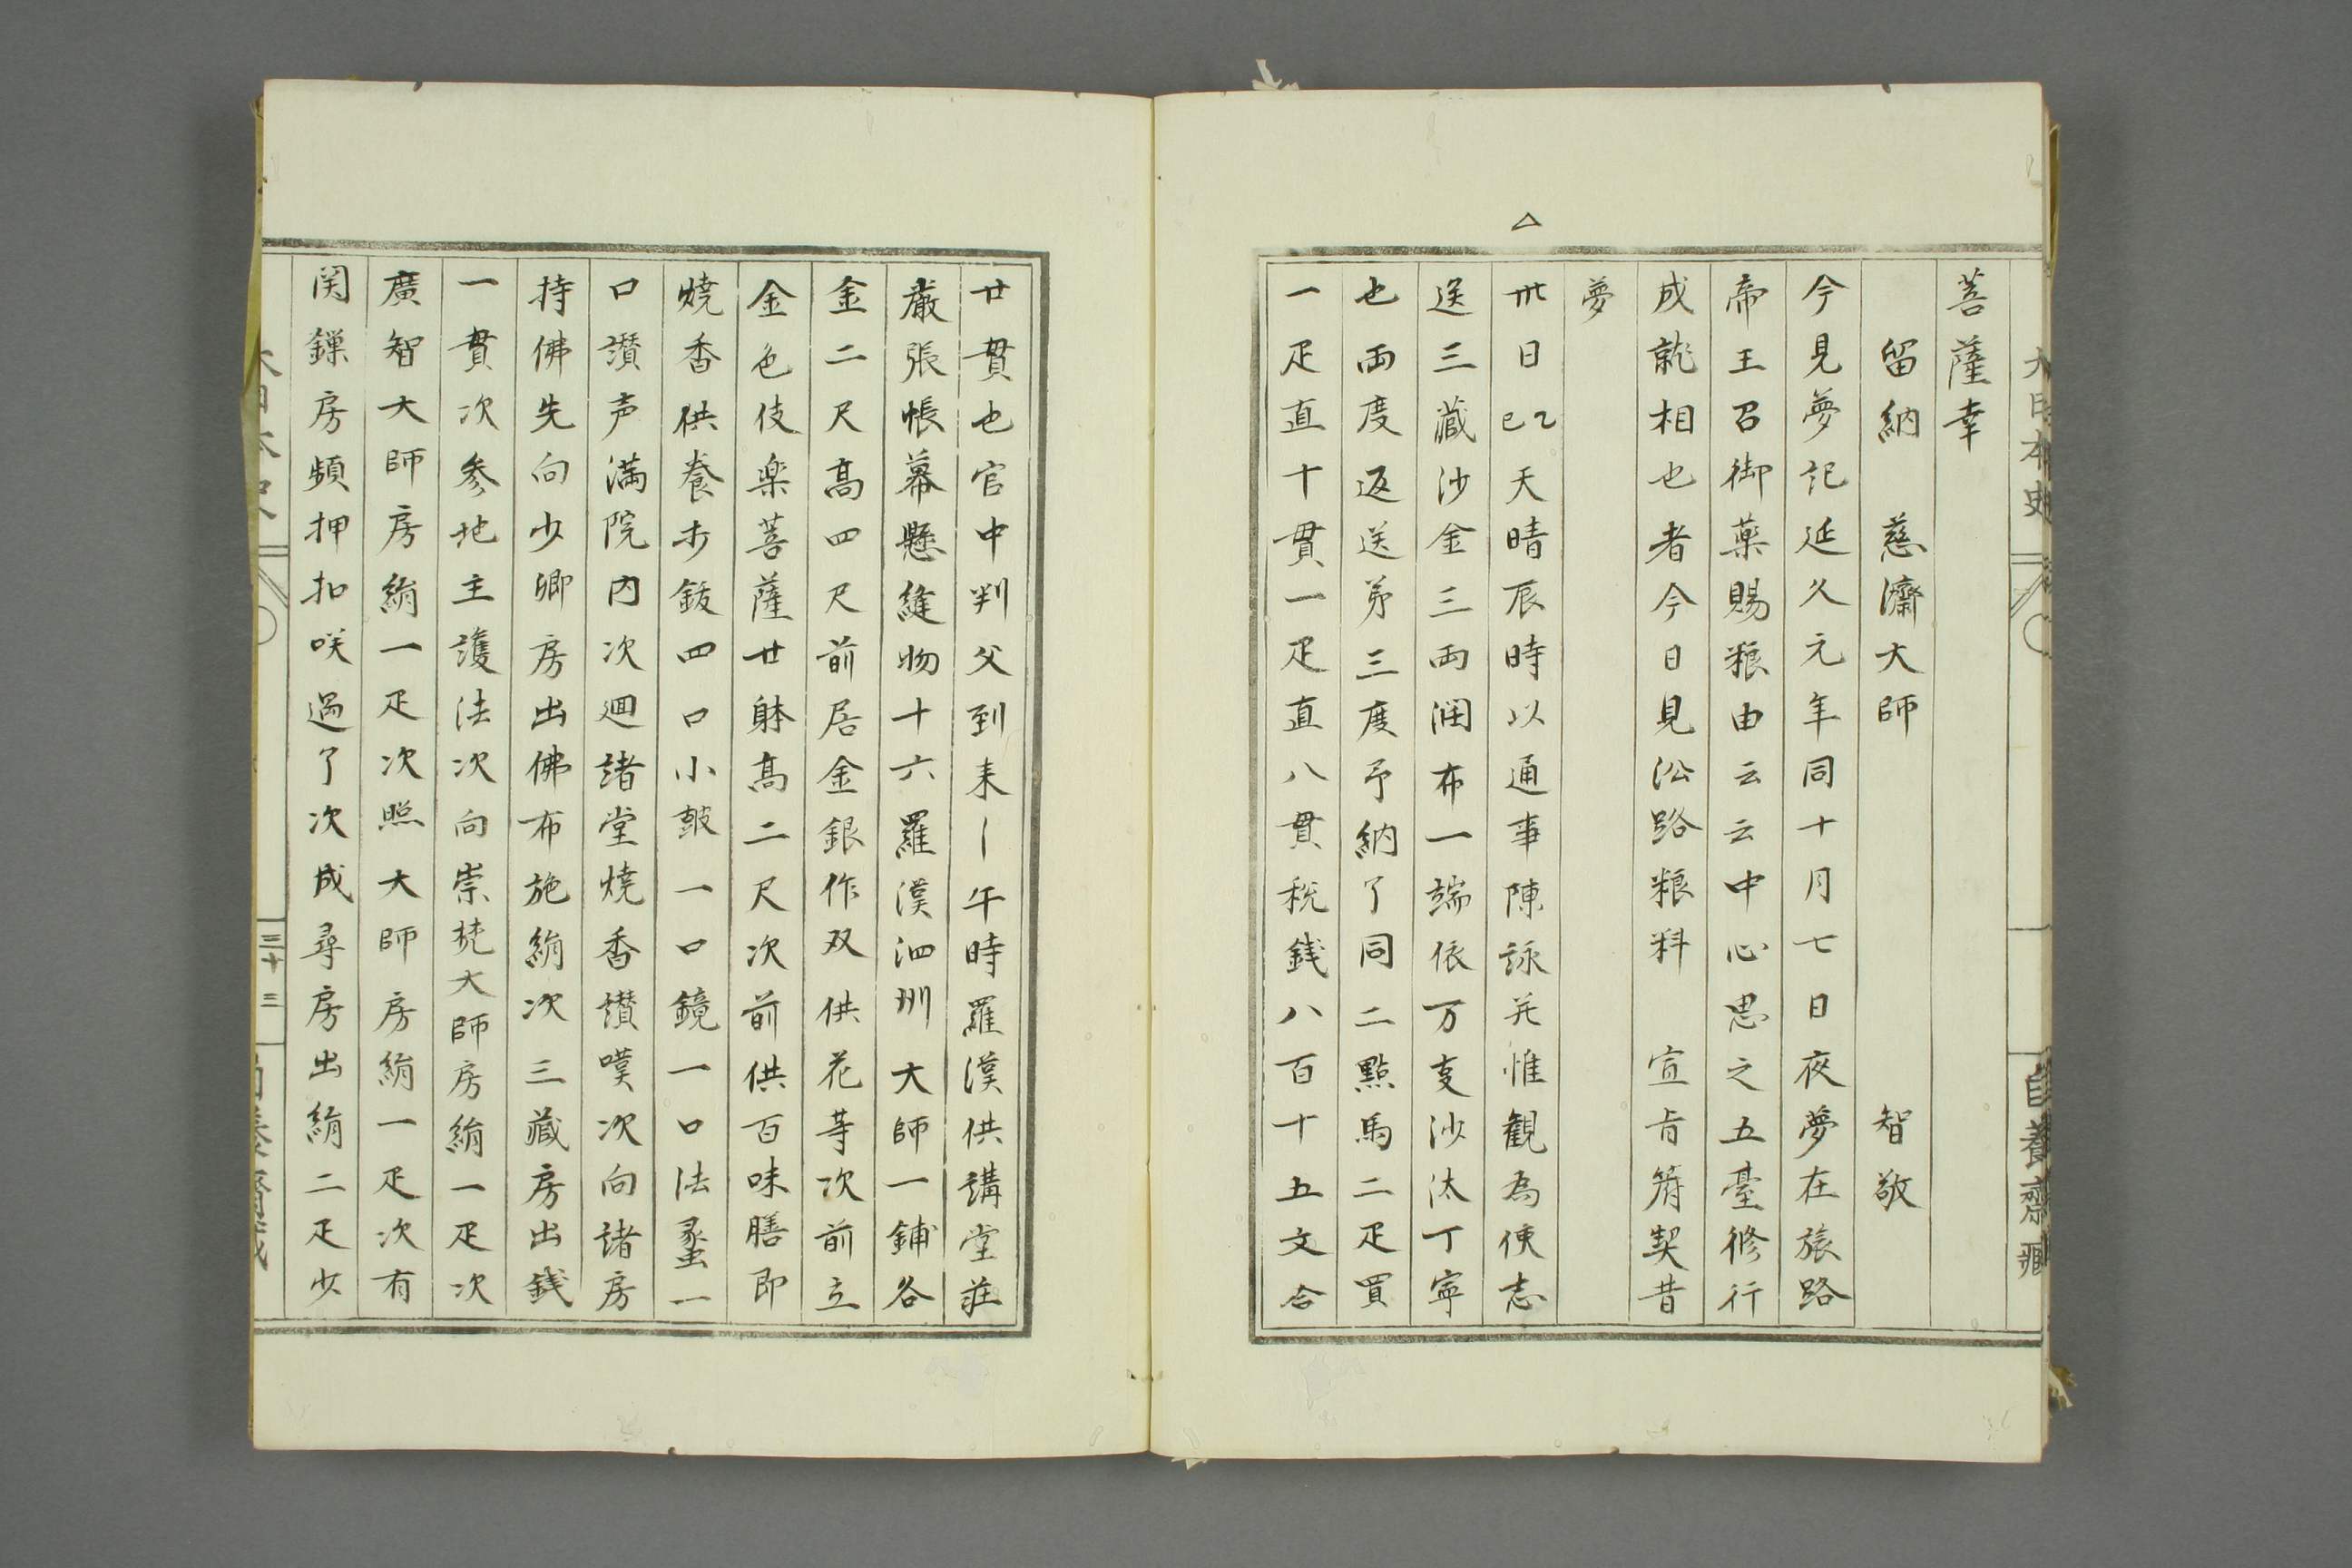 大日本史
自養齋藏
菩薩幸
留納　慈濟大師　智敬
今見夢記延久元年同十月七日夜夢在旅路
帝王召御薬賜粮由云云中心思之五臺修行
成就相也者今日見沿路粮料　宣旨符契昔
夢
△
卅日己乙天晴辰時以通事陳詠并惟観為使志
送三藏沙金三両細布一端依万事沙汰丁寧
也両度返送第三度予納了同二點馬二疋買
一疋直十貫一疋直八貫税銭八百十五文合
廿貫也官中判父到来｜午時羅漢供講堂莊
厳張帳幕懸縫物十六羅漢泗洲大師一鋪各
金二尺高四尺前居金銀作双供花等次前立
金色伎楽菩薩廿躰高二尺次前供百味膳即
燒香供養步鈸四口小皷一口鏡一口法蠡一
口讃声満院内次廻諸堂燒香讃嘆次向諸房
持佛先向少卿房出佛布施絹次三藏房出銭
一貫次参地主護法次向崇梵大師房絹一疋次
廣智大師房絹一疋次照大師房絹一疋次有
関鏁房頻押扣咲過了次成尋房出絹二疋少
三十三